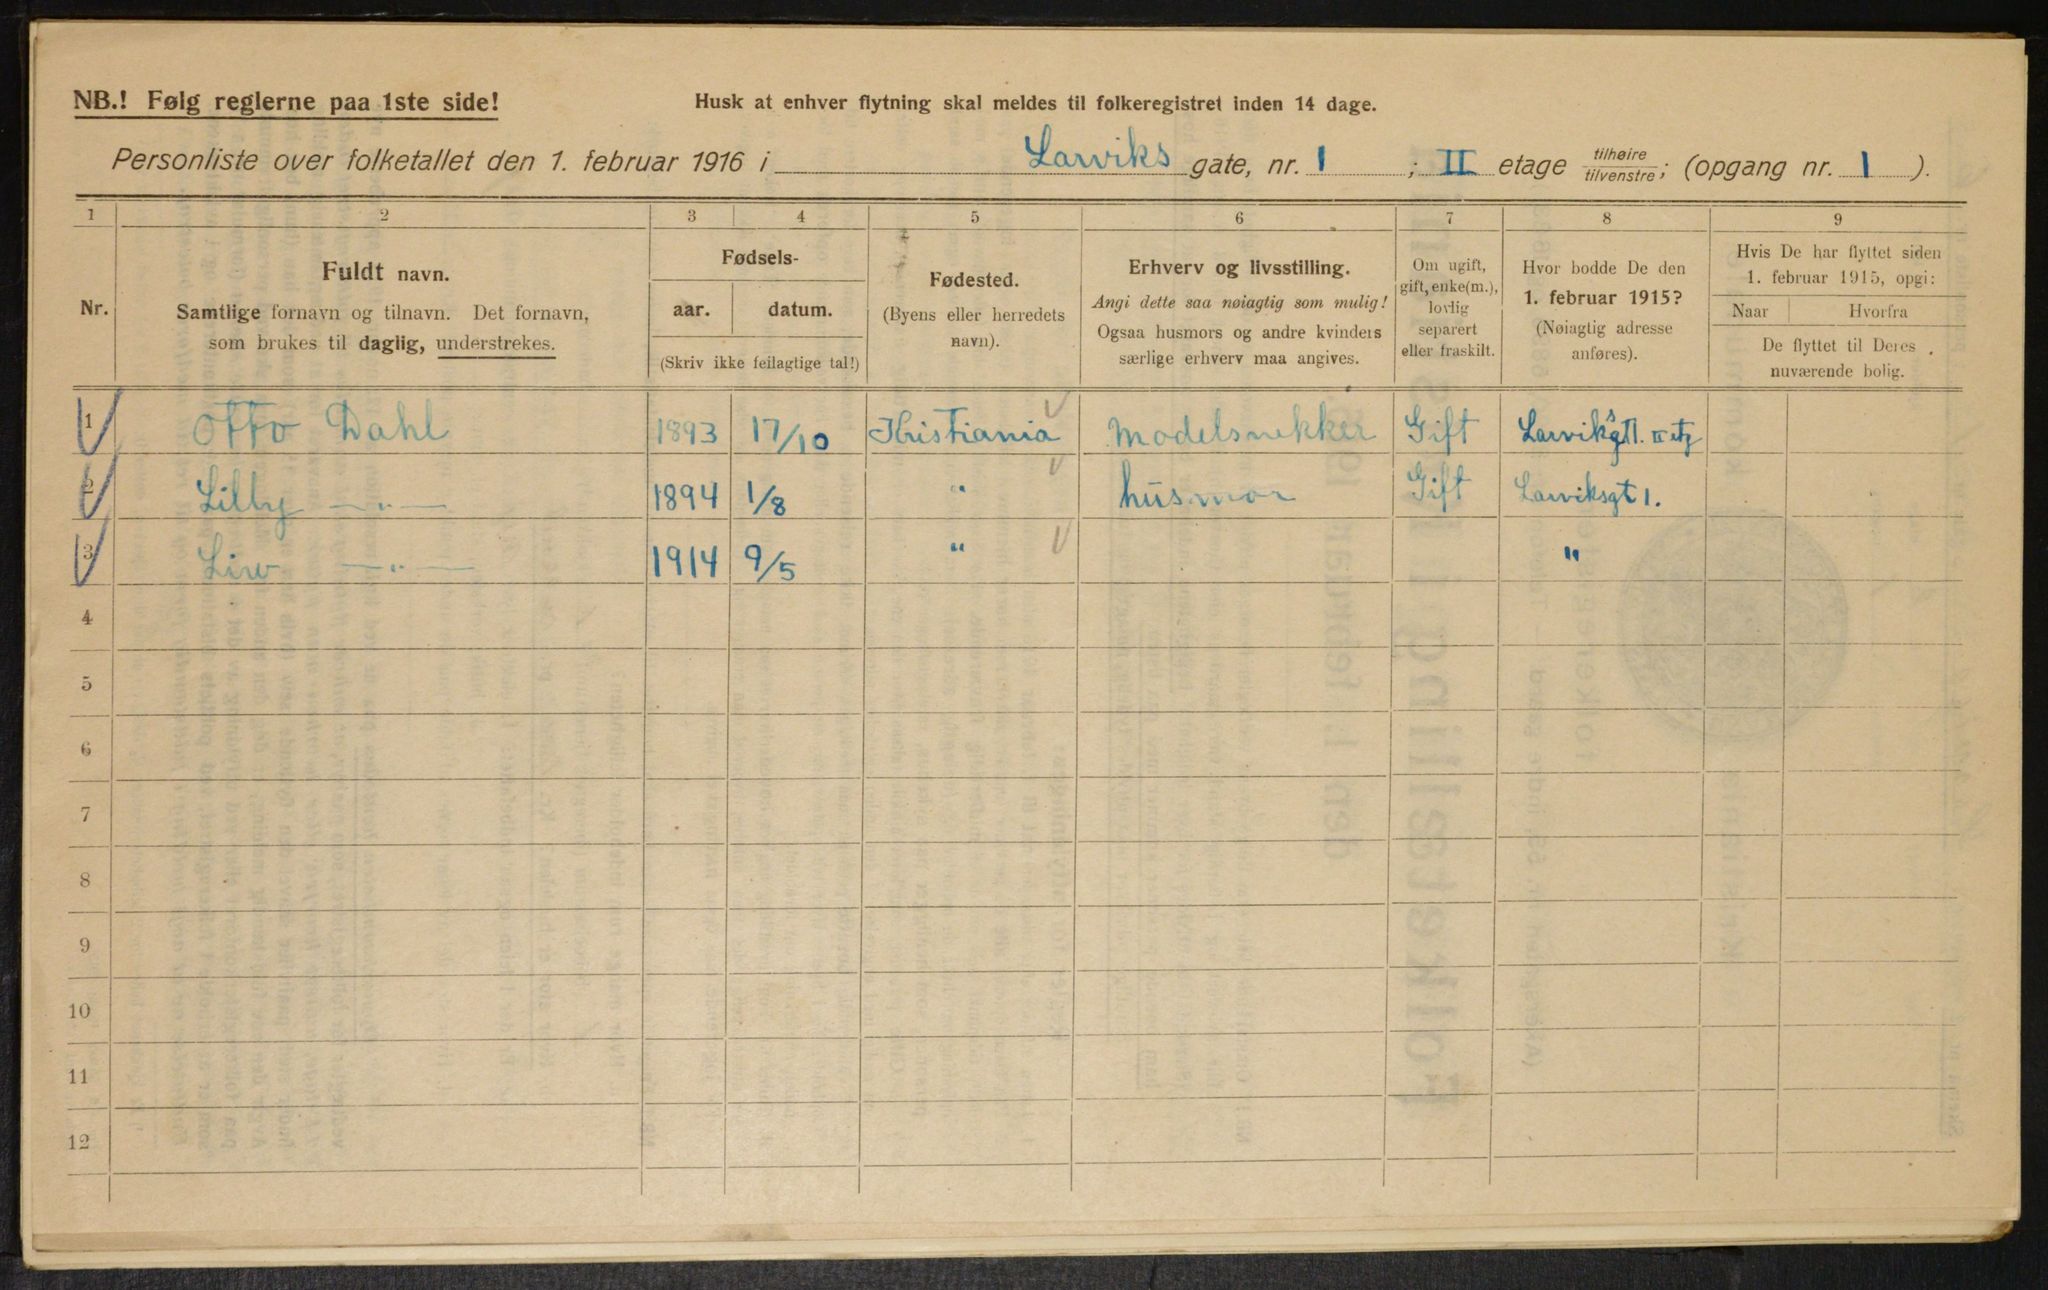 NB.! Følg reglerne paa 1ste side!
Husk at enhver flytning skal meldes til folkeregistret inden 14 dage.
Personliste over folketallet den 1. februar 1916 i Larviks gate, nr. 1 ; II etage tilhøire/tilvenstre; (opgang nr. 1 ).
1 2 3 4 5 6 7 8 9
Nr.
Fuldt navn.
Samtlige fornavn og tilnavn. Det fornavn,
som brukes til daglig, understrekes.
Fødsels-
aar. datum.
(Skriv ikke feilagtige tal!)
Fødested.
(Byens eller herredets
navn).
Erhverv og livsstilling.
Angi dette saa nøiagtig som mulig!
Ogsaa husmors og andre kvinders
særlige erhverv maa angives.
Om ugift,
gift, enke(m.),
lovlig
separert
eller fraskilt.
Hvor bodde De den
1. februar 1915?
(Nøiagtig adresse
anføres).
Hvis De har flyttet siden
1. februar 1915, opgi:
Naar Hvorfra
De flyttet til Deres
nuværende bolig.
1 Otto Dahl 1893 17/10 Kristiania Modelsnekker Gift Larviksgt 1. II etg
2 Lilly —„— 1894 1/8 " husmor Gift Larviksgt 1.
3 Liv —„— 1914 9/5 " "
4
5
6
7
8
9
10
11
12